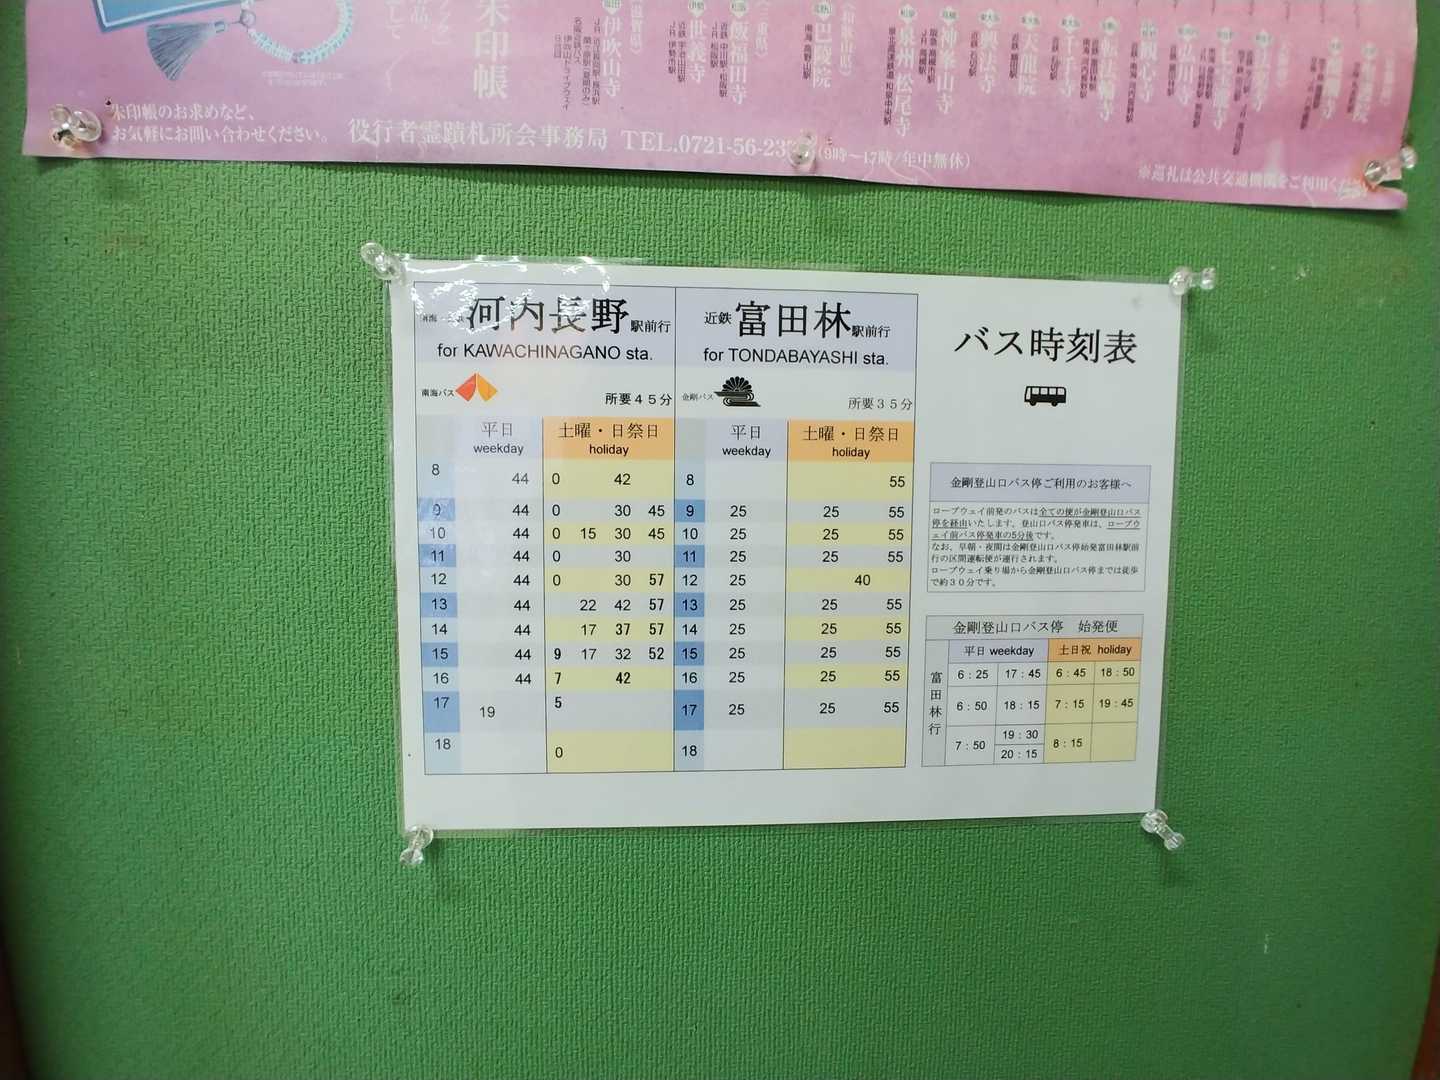 朱印帳
朱印帳のお求めなど、
お気軽にお問い合わせください。
役行者霊蹟札所会事務局 TEL.0721-56-23
(9時〜17時/年中無休)
※巡礼は公共交通機関をご利用くだ
伊吹山寺
世義寺
飯福田寺
巴陵院
泉州 松尾寺
神峯山寺
興法寺
天龍院
千手寺
観心寺
弘川寺
河内長野駅前行
for KAWACHINAGANO sta.
南海バス 所要45分
平日 土曜・日祭日
weekday holiday
8 44 0 42
9 44 0 30 45
10 44 0 15 30 45
11 44 0 30
12 44 0 30 57
13 44 22 42 57
14 44 17 37 57
15 44 9 17 32 52
16 44 7 42
17 19 5
18 0
近鉄富田林駅前行
for TONDABAYASHI sta.
金剛バス 所要35分
平日 土曜・日祭日
weekday holiday
8 55
9 25 25 55
10 25 25 55
11 25 25 55
12 25 40
13 25 25 55
14 25 25 55
15 25 25 55
16 25 25 55
17 25 25 55
18
バス時刻表
金剛登山口バス停ご利用のお客様へ
ロープウェイ前発のバスは全ての便が金剛登山口バス
停を経由いたします。登山口バス停発車は、ロープウ
ェイ前バス停発車の5分後です。
なお、早朝・夜間は金剛登山口バス停始発富田林駅前
行の区間運転便が運行されます。
ロープウェイ乗り場から金剛登山口バス停までは徒歩
で約30分です。
金剛登山口バス停 始発便
平日 weekday 土日祝 holiday
富田林行
6:25 17:45 6:45 18:50
6:50 18:15 7:15 19:45
7:50 19:30 8:15
20:15